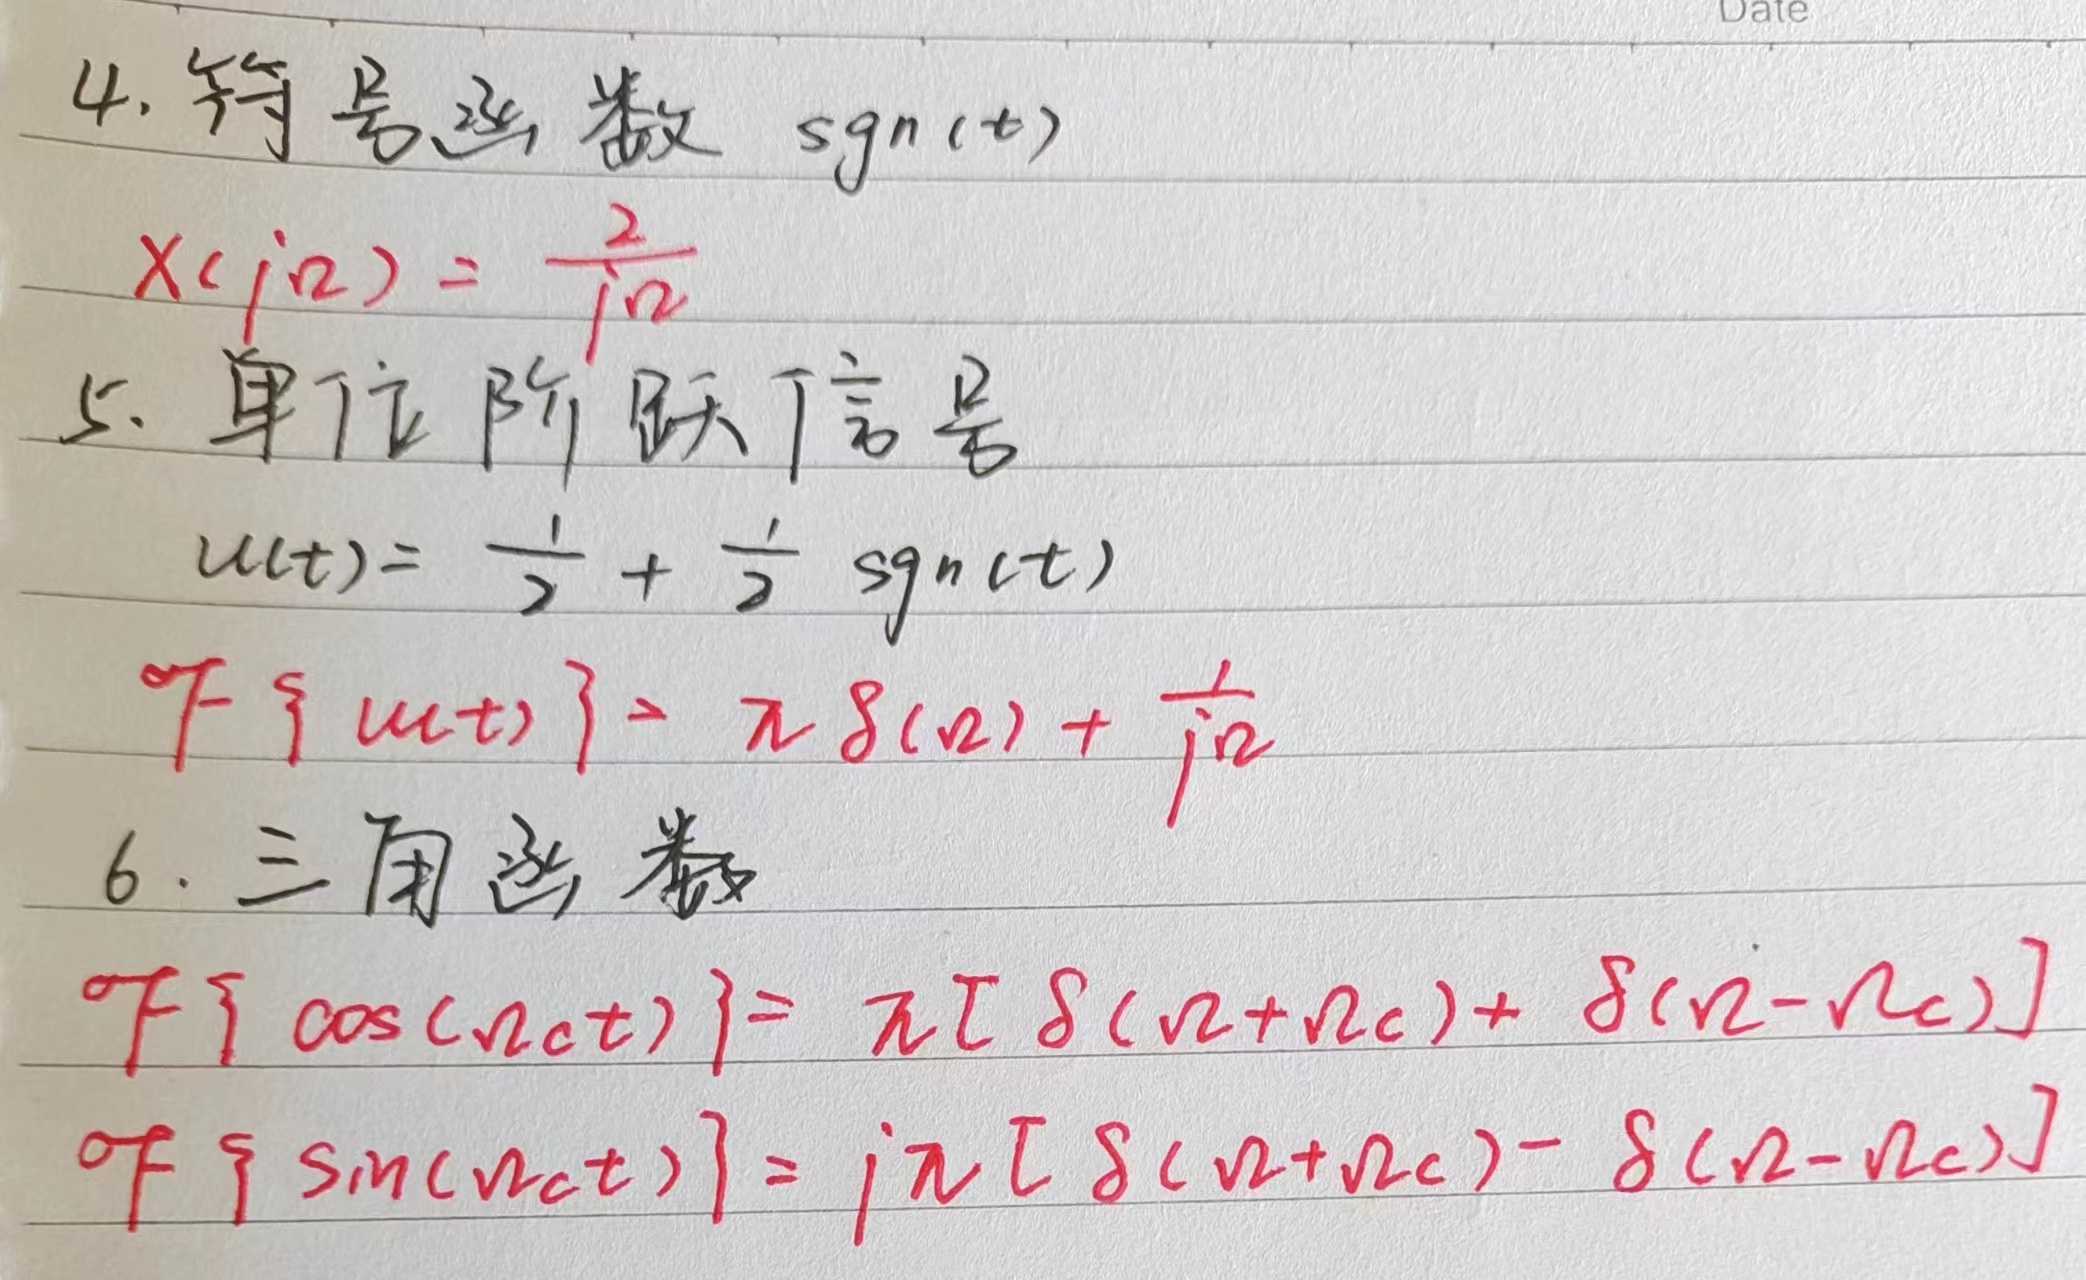 Date
4. 符号函数 sgn(t)
X(jΩ) = 2/jΩ
5. 单位阶跃信号
u(t) = 1/2 + 1/2 sgn(t)
ℱ{u(t)} = πδ(Ω) + 1/jΩ
6. 三角函数
ℱ{cos(Ωct)} = π[δ(Ω+Ωc) + δ(Ω-Ωc)]
ℱ{sin(Ωct)} = jπ[δ(Ω+Ωc) - δ(Ω-Ωc)]